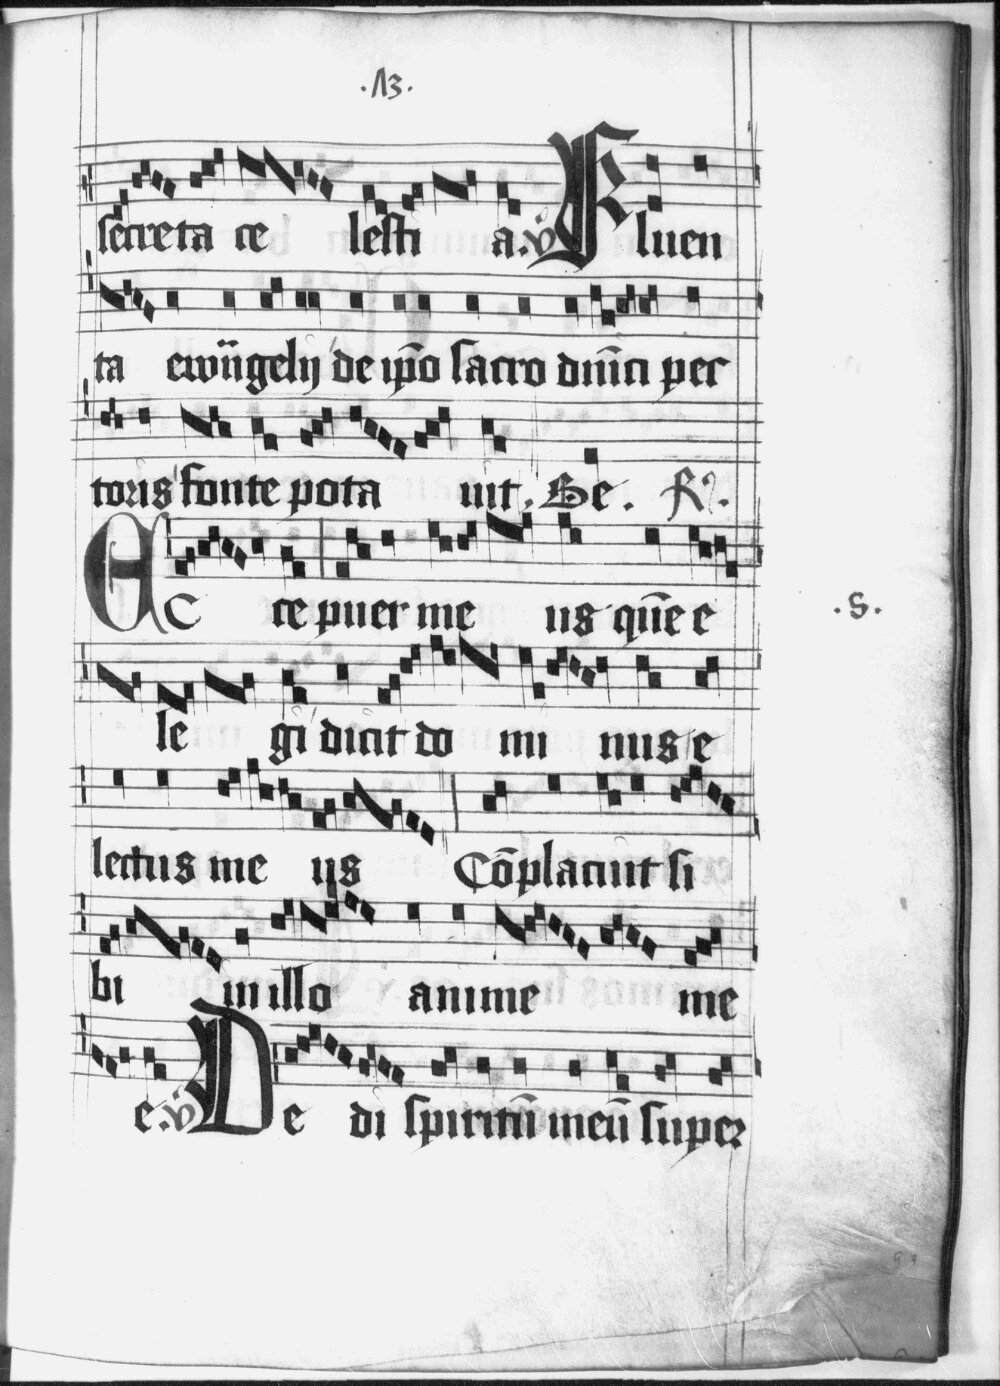 .13.
secreta ce lesti a. v̄ Fluen
ta ewūgelij de ip̄o sacro dn̄ici pec
toris fonte pota uit. Be. R.
Ecce puer me us quē e
.5.
le gi dicit do mi nus e
lectus me us Cōplacuit si
bi in illo anime me
e. v̄ De di spiritū meū super
53